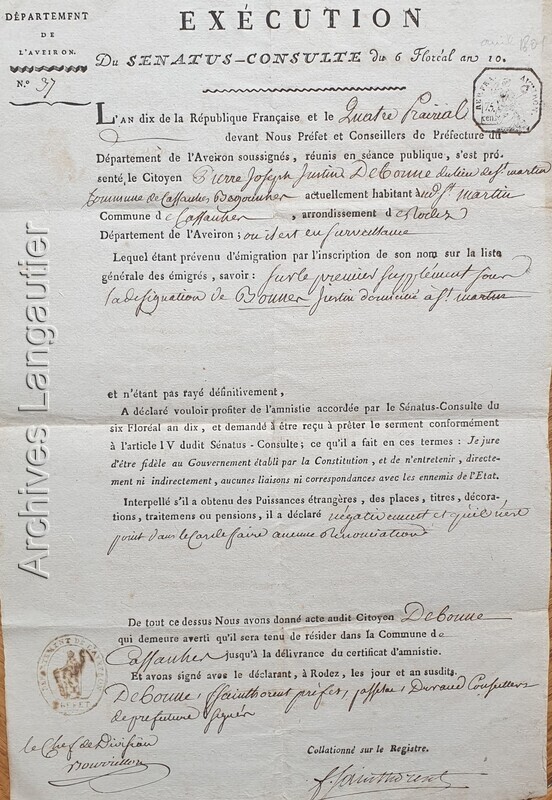 DÉPARTEMENT
DE
L'AVEIRON.
N.º 37
EXÉCUTION
Du SENATUS-CONSULTE du 6 Floréal an 10.
L'AN dix de la République Française et le Quatre Prairial
devant Nous Préfet et Conseillers de Préfecture du
Département de l'Aveiron soussignés, réunis en séance publique, s'est pré-
senté le Citoyen Pierre Joseph Justin Debonne du lieu de St. martin
Commune de Cassanhes Begonhes actuellement habitant à St. martin
Commune de Cassanhes, arrondissement de Rodez
Département de l'Aveiron; ou il est en surveillance
Lequel étant prévenu d'émigration par l'inscription de son nom sur la liste
générale des émigrés, savoir : sur le premier supplément sous
la designation de Bonnes justin domicilié à St. martin
et n'étant pas rayé définitivement,
A déclaré vouloir profiter de l'amnistie accordée par le Sénatus-Consulte du
six Floréal an dix, et demandé à être reçu à prêter le serment conformément
à l'article IV dudit Sénatus-Consulte; ce qu'il a fait en ces termes : Je jure
d'être fidèle au Gouvernement établi par la Constitution, et de n'entretenir, directe-
ment ni indirectement, aucunes liaisons ni correspondances avec les ennemis de l'Etat.
Interpellé s'il a obtenu des Puissances étrangères, des places, titres, décora-
tions, traitemens ou pensions, il a déclaré négativement et qu'il n'est
point dans le Cas de faire aucune Renonciation
De tout ce dessus Nous avons donné acte audit Citoyen Debonne
qui demeure averti qu'il sera tenu de résider dans la Commune de
Cassanhes jusqu'à la délivrance du certificat d'amnistie.
Et avons signé avec le déclarant, à Rodez, les jour et an susdits.
Debonne, Sainthorent préfet, Durand Conseillers
de prefecture signés
Collationné sur le Registre.
le Chef de Division
f. Sainthorent
Archives Langautier